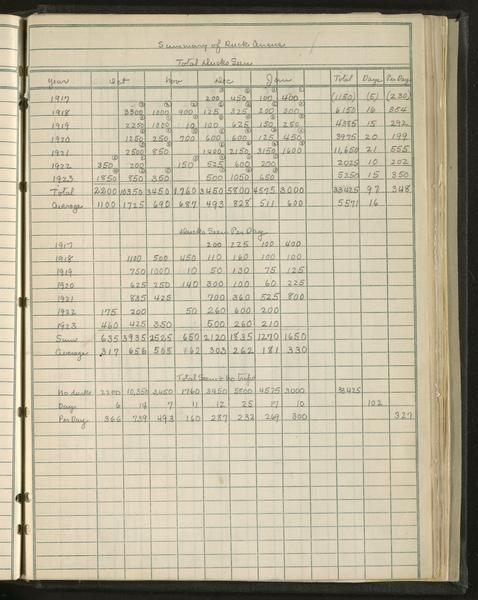 Summary of Duck Census
Total Ducks Seen
Year Oct Nov Dec Jan Total Days Per Day
1917 200 450 100 400 (1150) (5) (230)
1918 3300 1000 900 125 325 200 200 6150 16 384
1919 2250 1000 10 100 625 150 250 4385 15 292
1920 1250 250 700 600 600 125 450 3975 20 199
1921 2500 850 1400 2150 3150 1600 11,650 21 555
1922 350 200 150 525 600 200 2025 10 202
1923 1850 850 350 500 1050 650 5250 15 350
Total 2200 10350 3450 1760 3450 5800 4575 3000 33425 97 348
Average 1100 1725 690 687 493 828 511 600 5571 16
Ducks Seen Per Day
1917 200 225 100 400
1918 1100 500 450 110 160 100 100
1919 750 1000 10 50 130 75 125
1920 625 250 140 300 100 60 225
1921 835 425 700 360 525 800
1922 175 200 50 260 600 200
1923 460 425 350 500 260 210
Sum 635 3935 2525 650 2120 1835 1270 1650
Average 317 656 505 162 303 262 181 330
Total Seen ÷ No trips
No ducks 2200 10,350 3450 1760 3450 5800 4575 3000 33425
Days 6 14 7 11 12 25 17 10 102
Per Day 366 739 493 160 287 232 269 300 327